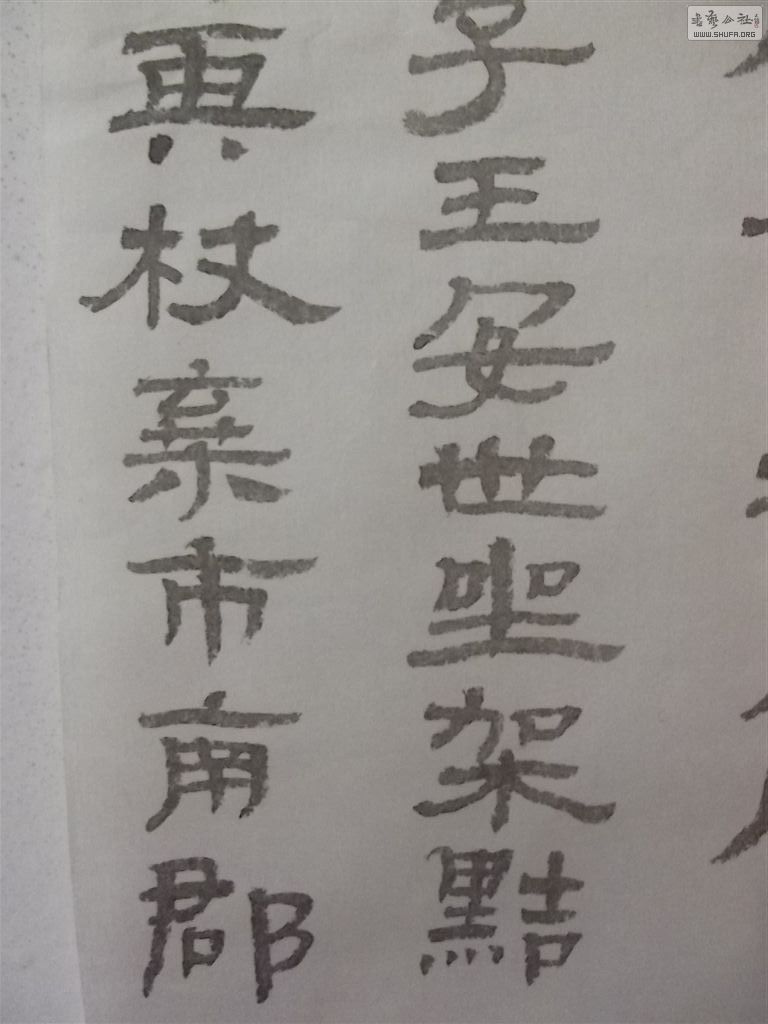 子王安世坐架黠
其杖棄市南郡
书艺公社
WWW.SHUFA.ORG